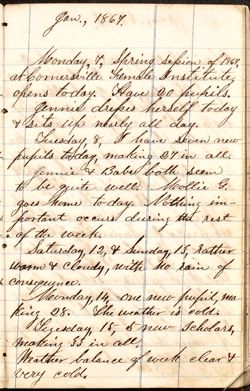 Jan., 1867.
Monday, 7, Spring session of 1867,
at Connersville Female Institute,
opens today. Have 20 pupils.
Jennie dresses herself today
& sits up nearly all day.
Tuesday, 8, I have seven new
pupils today, making 27 in all.
Jennie & Babe both seem
to be quite well. Mollie G.
goes home to-day. Nothing im-
portant occurs during the rest
of the week.
Saturday, 12, & Sunday, 13, Rather
warm & cloudy, with no rain of
consequence.
Monday, 14, one new pupil, ma-
king 28. The weather is cold.
Tuesday, 15, 5 new scholars,
making 33 in all.
Weather balance of week clear &
very cold.